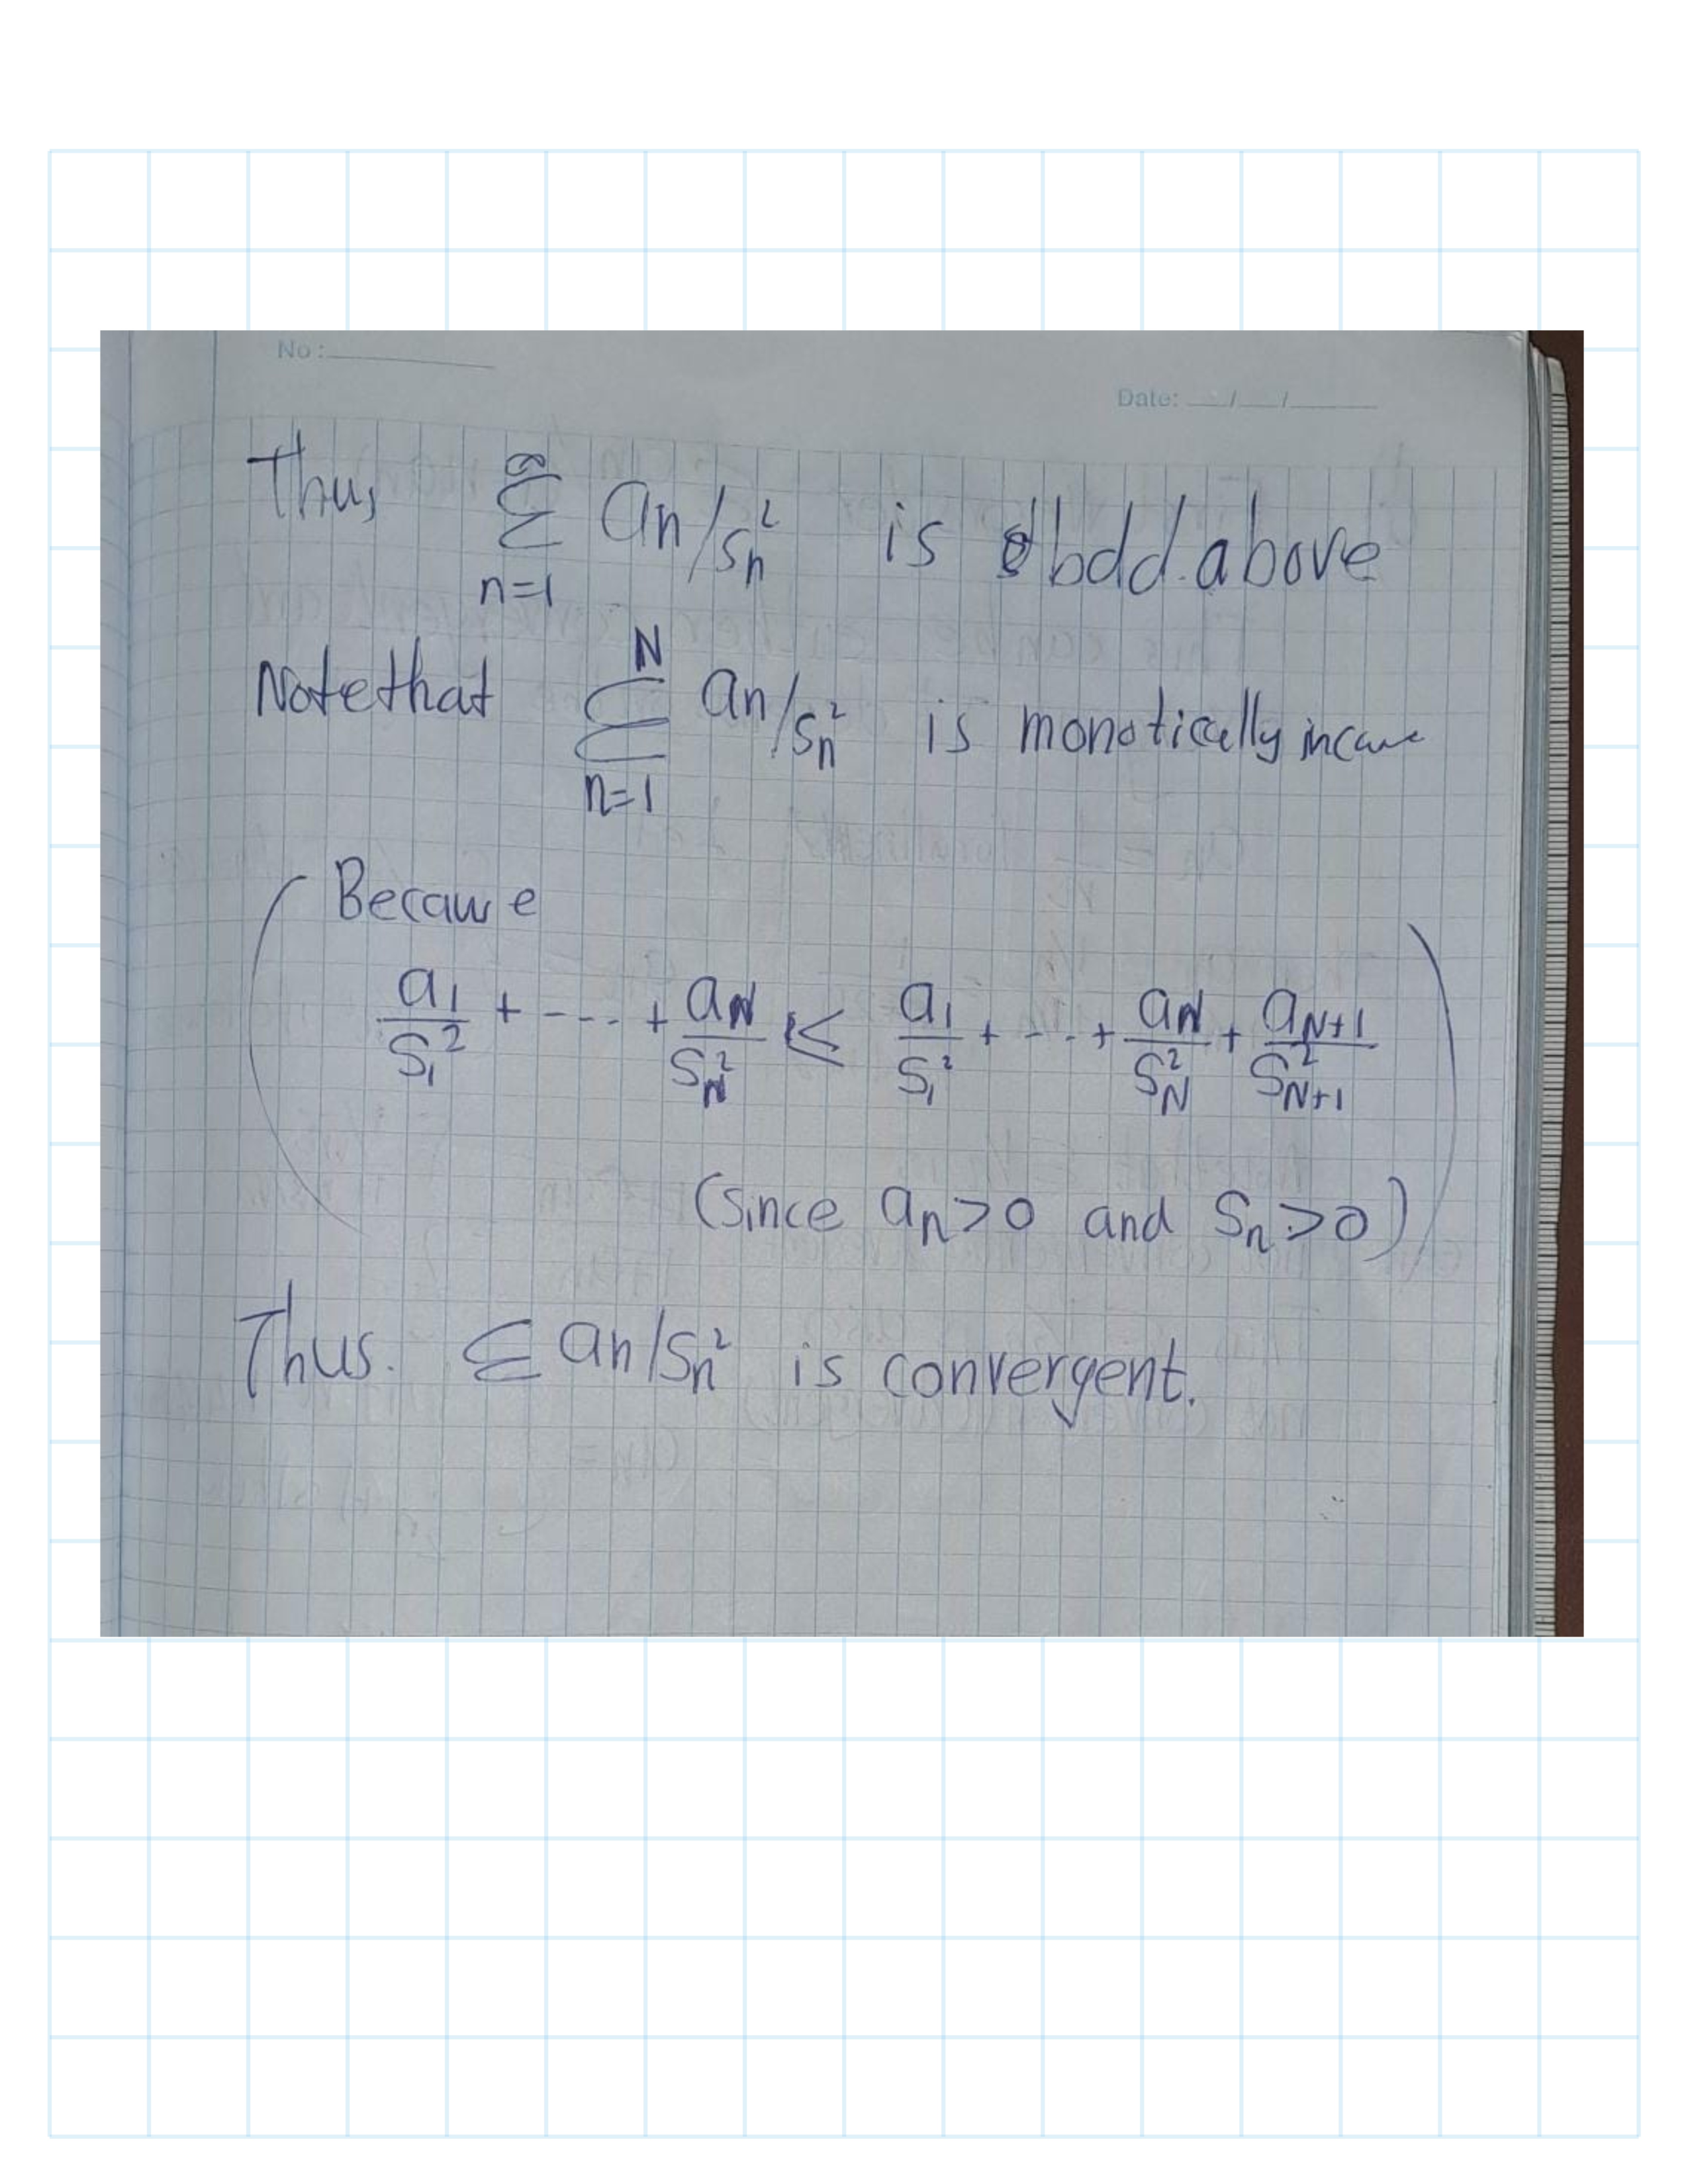 No:
Date: / /
Thus ∞ Σ n=1 an/sn² is bdd. above
Note that N Σ n=1 an/sn² is monotically
Because
a1/S1² + ---- + aN/SN² ≤ a1/S1² + - - - + aN/SN² + aN+1/S²N+1
(since an>0 and Sn>0)
Thus. Σ an/Sn² is convergent.